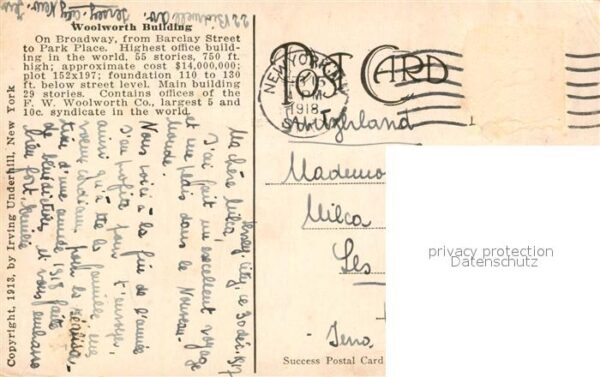 22
Jersey City New Jers
Woolworth Building
On Broadway, from Barclay Street
to Park Place. Highest office build-
ing in the world, 55 stories, 750 ft.
high; approximate cost $14,000,000;
plot 152x197; foundation 110 to 130
ft. below street level. Main building
29 stories. Contains offices of the
F. W. Woolworth Co., largest 5 and
10c. syndicate in the world.
Copyright, 1913, by Irving Underhill, New York
Jersey-City, le 30 déc. 1917
Ma chère Milca,
J'ai fait un excellent voyage
et me plais dans le Nouveau-
Monde.
Nous voici à la fin de l'année
j'en profite pour t'envoyer,
ainsi qu'à ta famille, mes
voeux cordiaux pour la réalisa-
tion d'une année 1918 faite
de bénédictions, et vous embrasse
bien fort,
POST CARD
NEW YORK
1918
Switzerland
Mademo
Milca
Les
Jena
Success Postal Card
privacy protection
Datenschutz